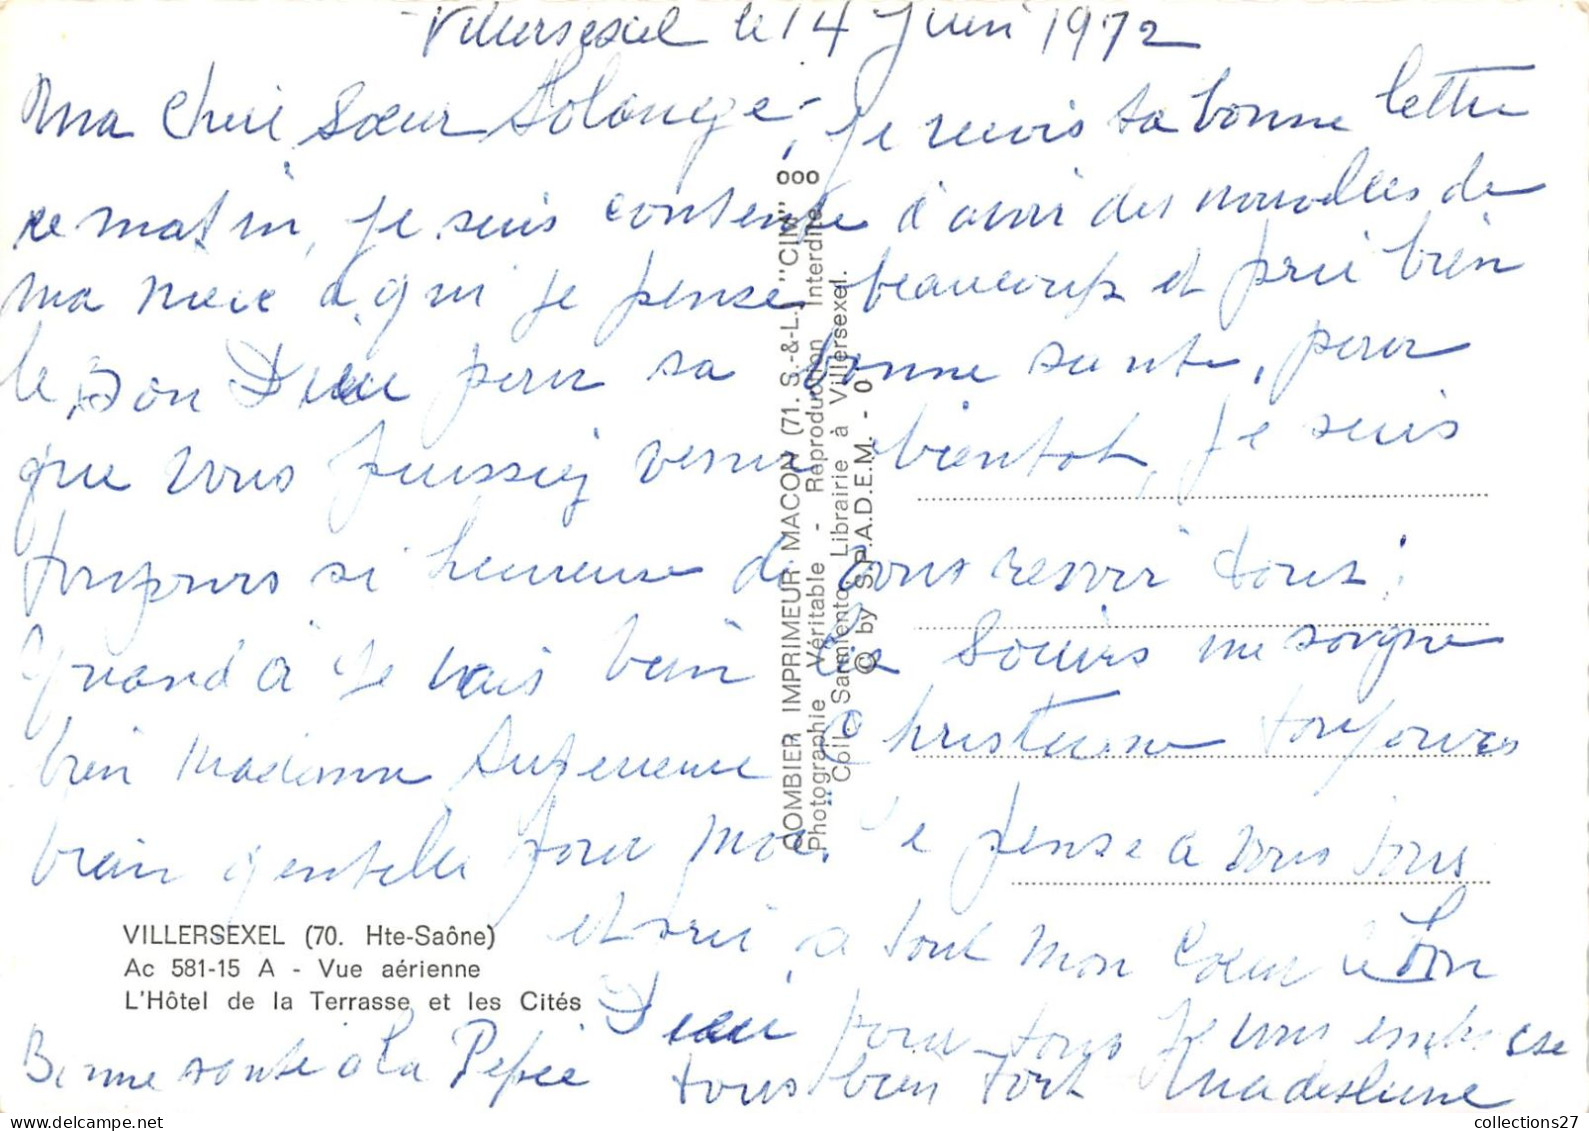 Villersexel le 14 Juin 1972
Ma chere Sœur Solange, Je recois ta bonne lettre
ce matin, je suis contente d'avoir des nouvelles de
ma mere a qui je pense beaucoup et prie bien
le Bon Dieu pour sa bonne sante, pour
que vous puissiez venir bientot, je suis
toujours si heureuse de vous revoir tous,
Quand à Je vais bien les Sœurs me soigne
bien Madame Superieure Christiane toujours
bien gentille pour moi. Je pense a vous tous
et prie a tout mon cœur le Bon
Dieu pour tous Je vous embrasse
tous bien fort Madeleine
Bonne sante a la Pepée
VILLERSEXEL (70. Hte-Saône)
Ac 581-15 A - Vue aérienne
L'Hôtel de la Terrasse et les Cités
COMBIER IMPRIMEUR MACON (71. S.-&-L.) "CIM"
Photographie Véritable - Reproduction Interdite
Coll. Sarmiento Librairie à Villersexel.
© by S.P.A.D.E.M. - 0
collections27